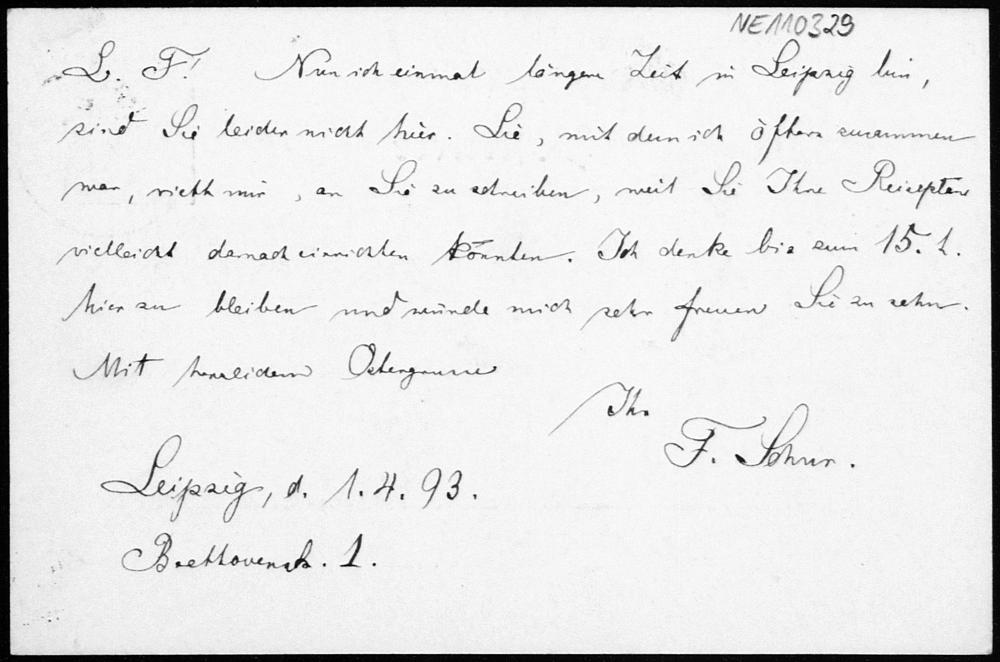 NE110329
L. F! Nun ich einmal längere Zeit in Leipzig bin,
sind Sie leider nicht hier. Lie, mit dem ich öfters zusammen
war, rieth mir, an Sie zu schreiben, weil Sie Ihre
vielleicht darnach einrichten könnten. Ich denke bis zum 15. h.
hier zu bleiben und würde mich sehr freuen Sie zu sehn.
Mit herzlichem Ostergrusse
Ihr
F. Schur.
Leipzig, d. 1.4.93.
Beethovenstr. 1.